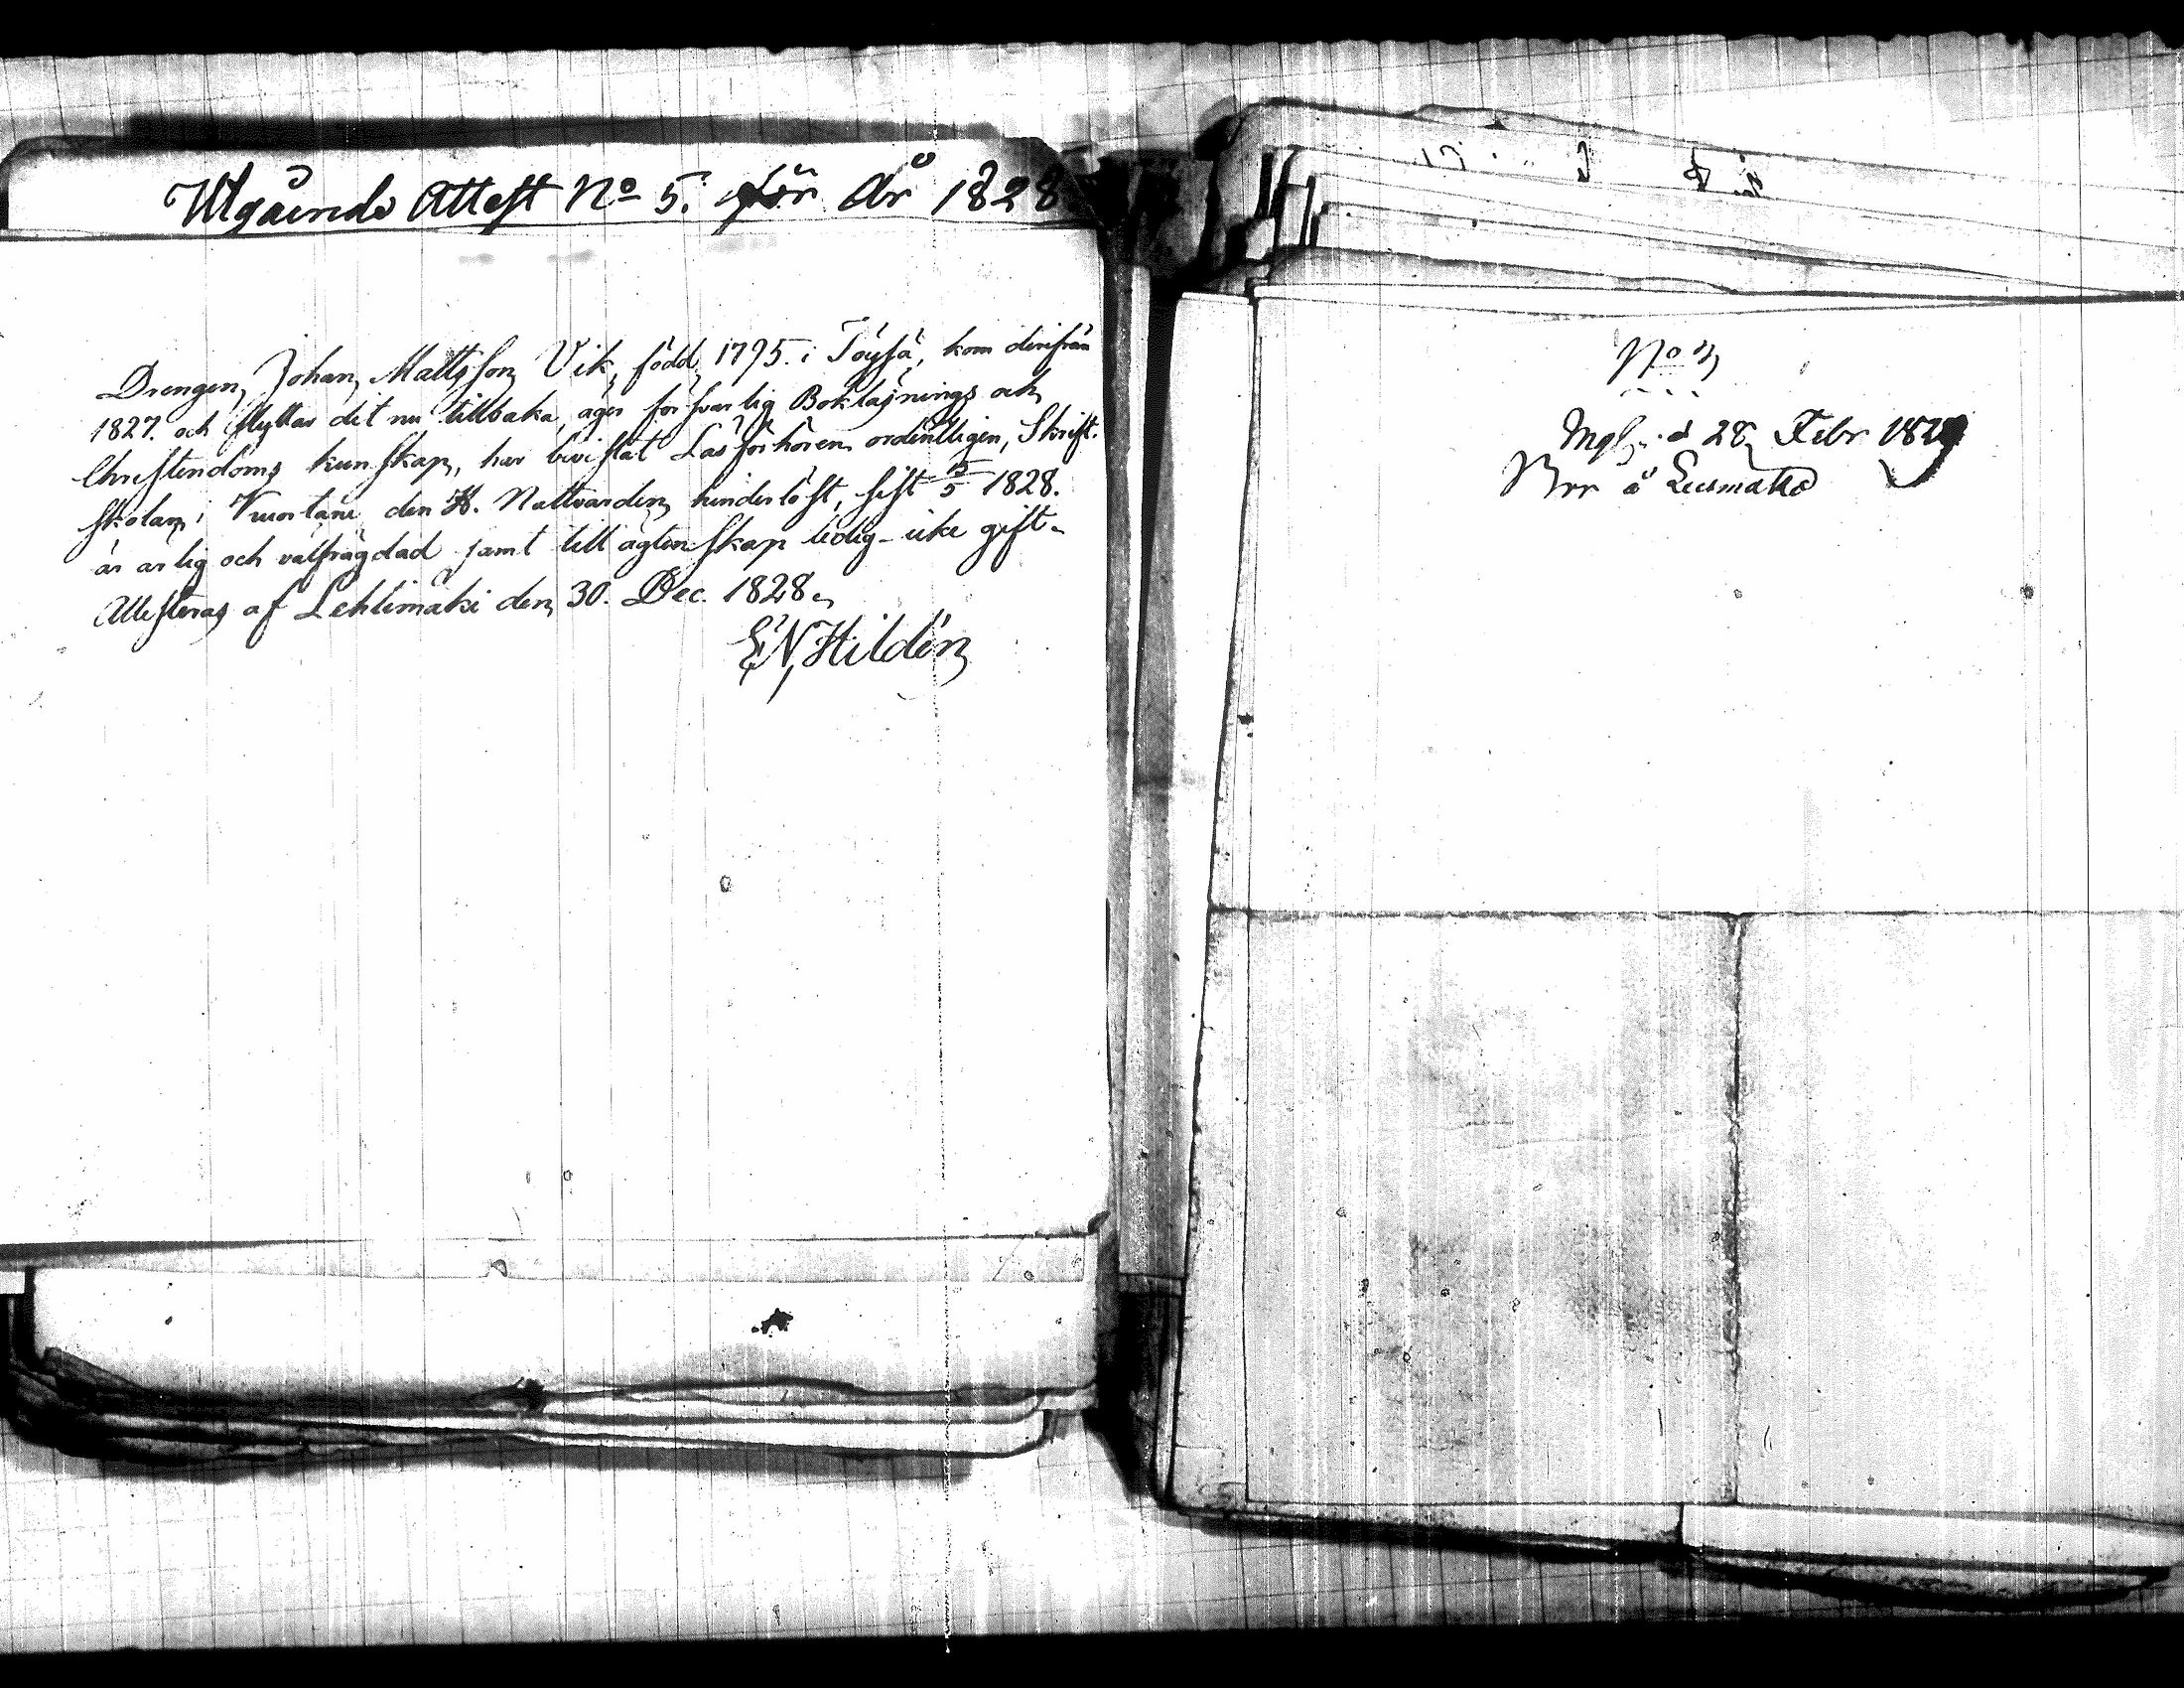 Utgående Attest No 5. för år 1828
Drengen Johan Mattsson Vik, född 1795. i Töysä, kom derifrån
1827. och flyttar dit nu tillbaka, äger försvarlig Bokläsnings och
Christendoms kunskap, har bevistat Läsförhören ordentligen, Skrift-
skolan i Kuortane den H. Nattvarden hinderlöst, sist 15/5 1828.
är ärlig och välfrägdad samt till ägtenskap ledig - icke gift.
Attesteras af Lehtimäki den 30. Dec. 1828.
E N Hildén
No 3
d 28 Febr 1829
å